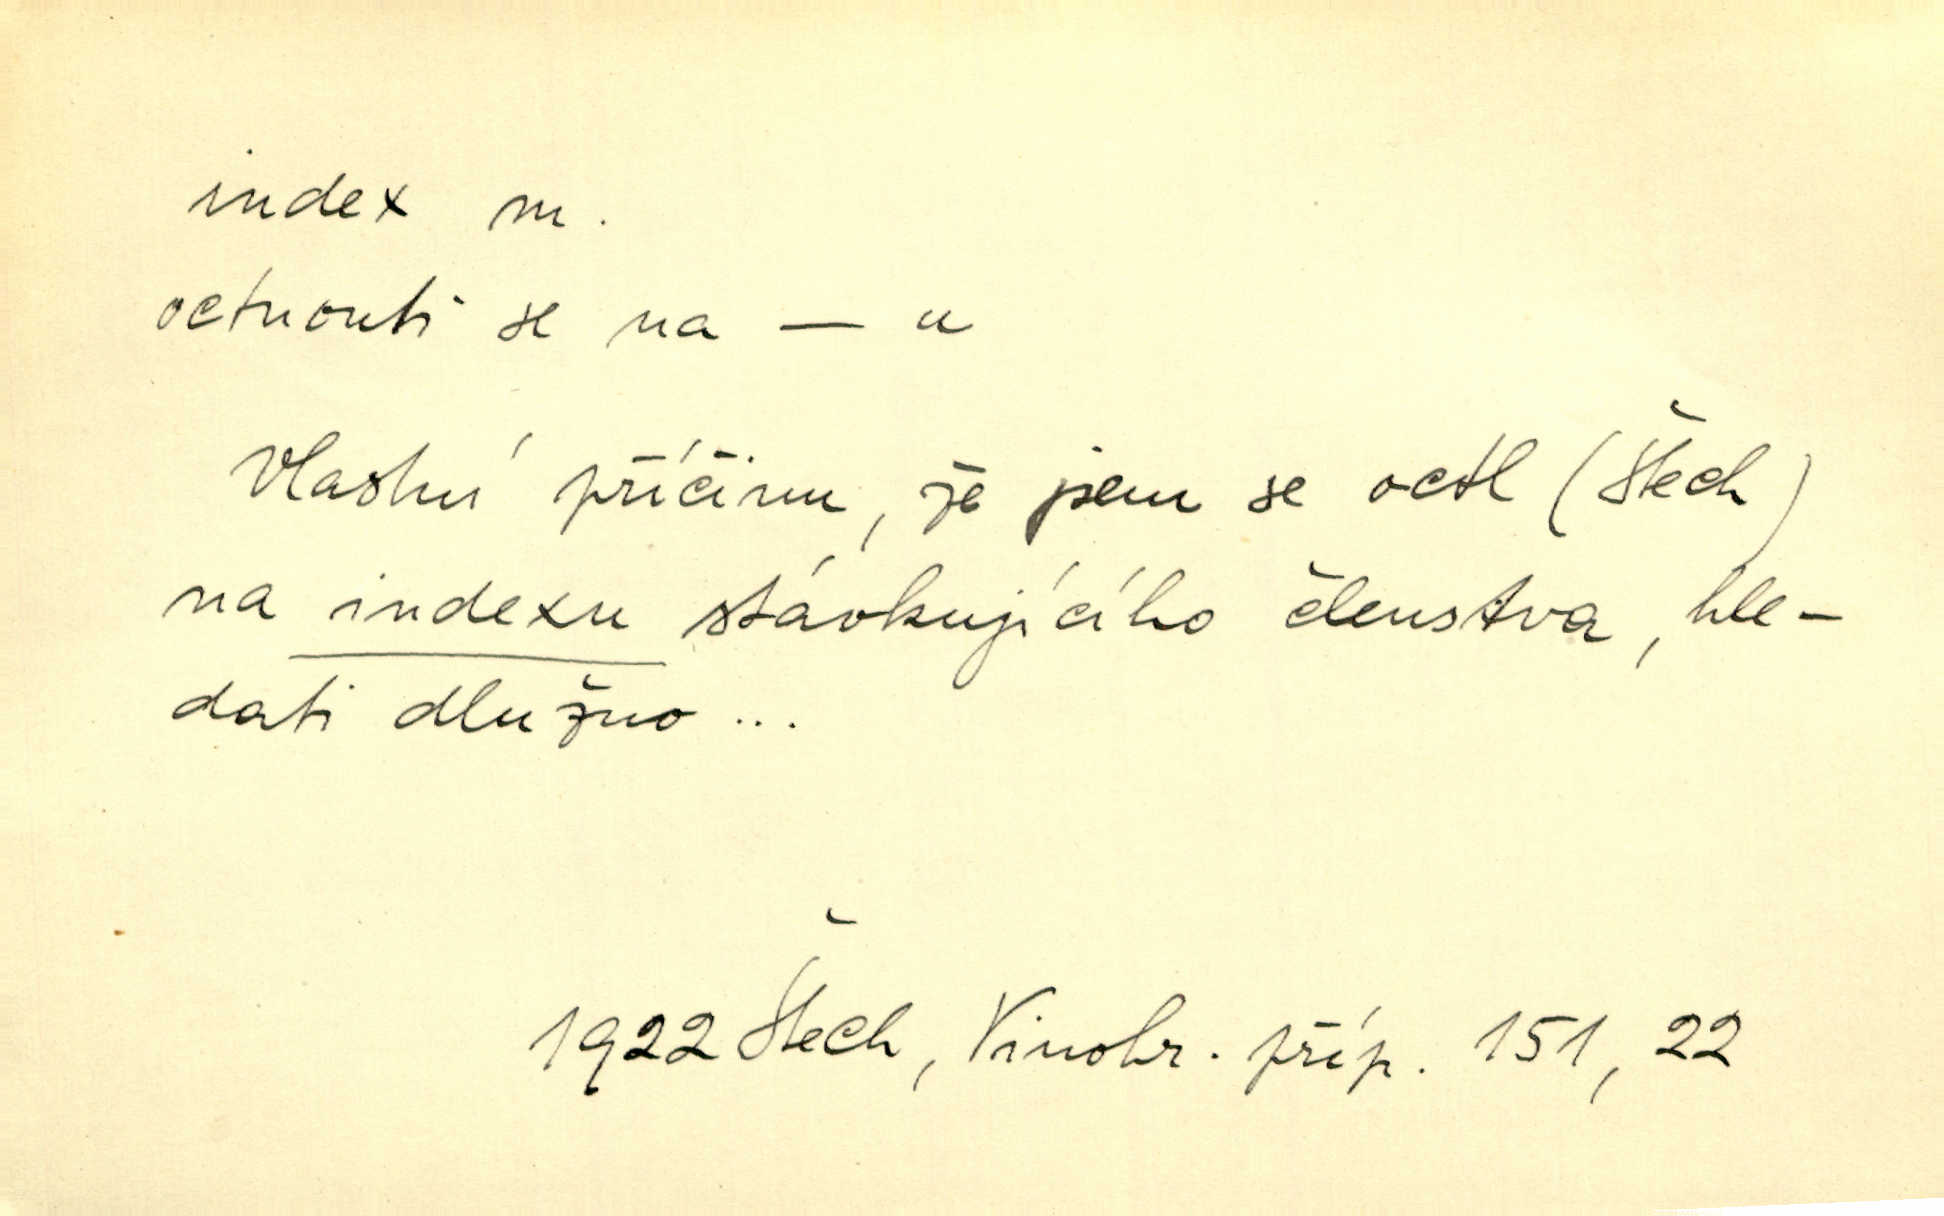 index m.
octnouti se na — u
Vlastní příčinu, že jsem se octl (Štech)
na indexu stávkujícího členstva, hle-
dati dlužno...
1922 Štech, Vinohr. příp. 151, 22